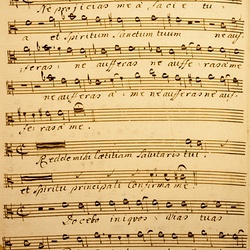 Ne projicias me à facie tu
a et Spiritum Sanctum tuum ne auf:
feras: ne aufferas ne aufferas a me
ne aufferas à me ne aufferas ne auf:
feras à me.
Redde mihi lætitiam Salutaris tui.
et Spiritu principali Confirma me.
Docebo iniquos Vias tuas